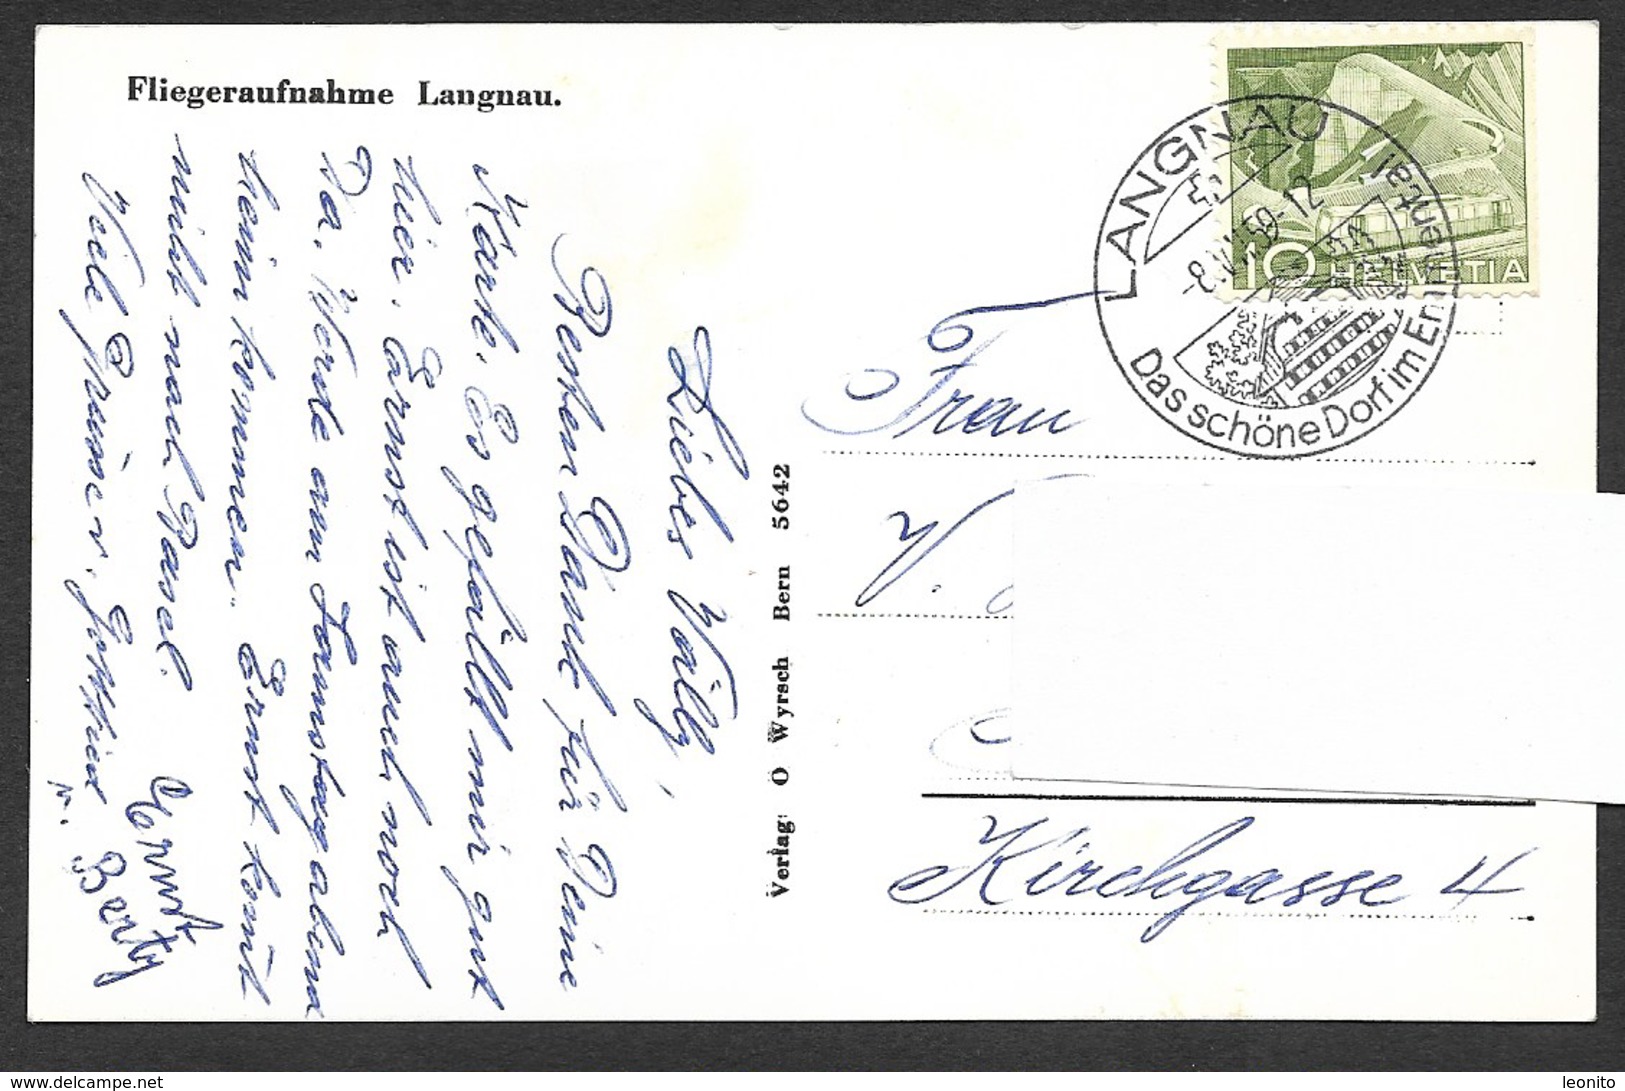 Fliegeraufnahme Langnau.
Liebes Vally,
Besten Dank für Deine
Karte. Es gefällt mir gut
hier. Ernst ist auch noch
da. Werde am Samstag abend
heim kommen. Ernst komt
nicht nach Basel.
Viele Grüsse v. Gottfried
v.
Ernst
Berty
Verlag: O Wyrsch Bern 5642
LANGNAU
-8. 59-12
Das schöne Dorf im Emmental
10 HELVETIA
Frau
V.
Kirchgasse 4
delcampe.net
leonito